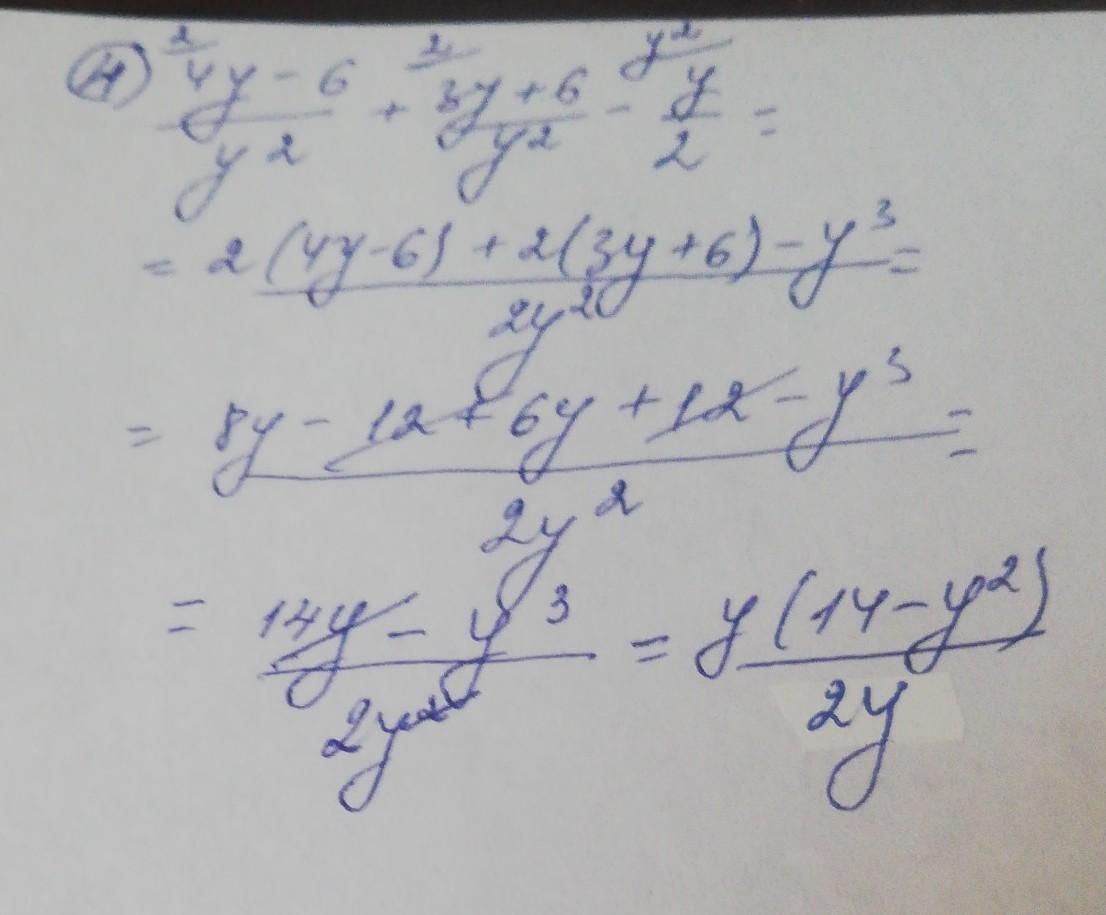 4) ²/ (4y - 6)/y² + ²/ (3y + 6)/y² - y²/ y/2 =
= (2(4y-6) + 2(3y+6) - y³)/2y² =
= (8y - 12 + 6y + 12 - y³)/2y² =
= (14y - y³)/2y² = y(14 - y²)/2y